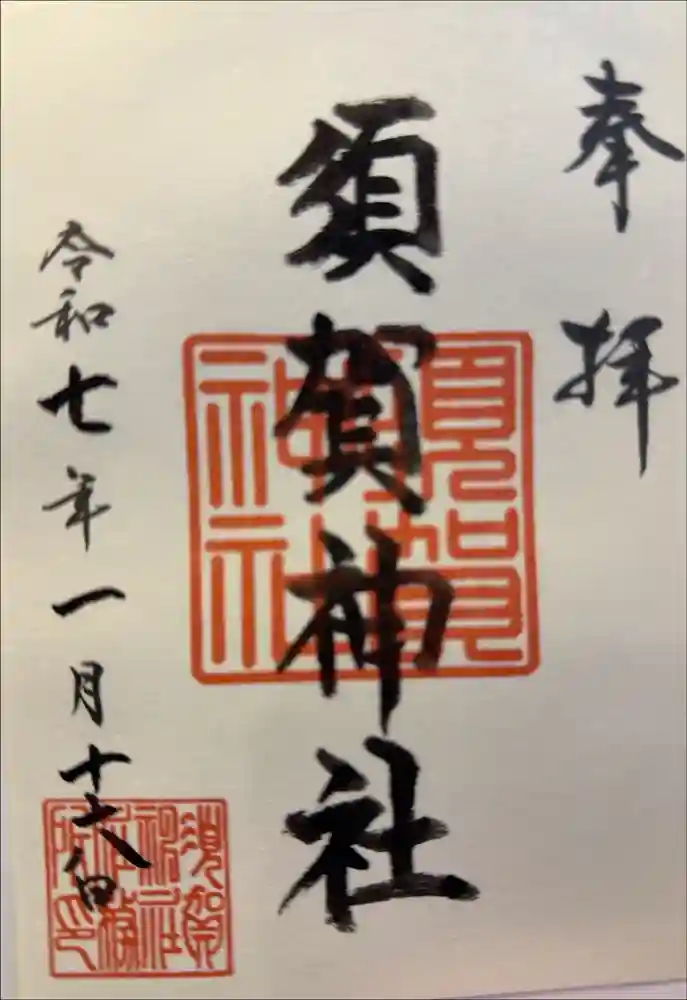 奉拝
須賀神社
令和七年一月十六日
須賀神社
須賀
神社
社務
所印